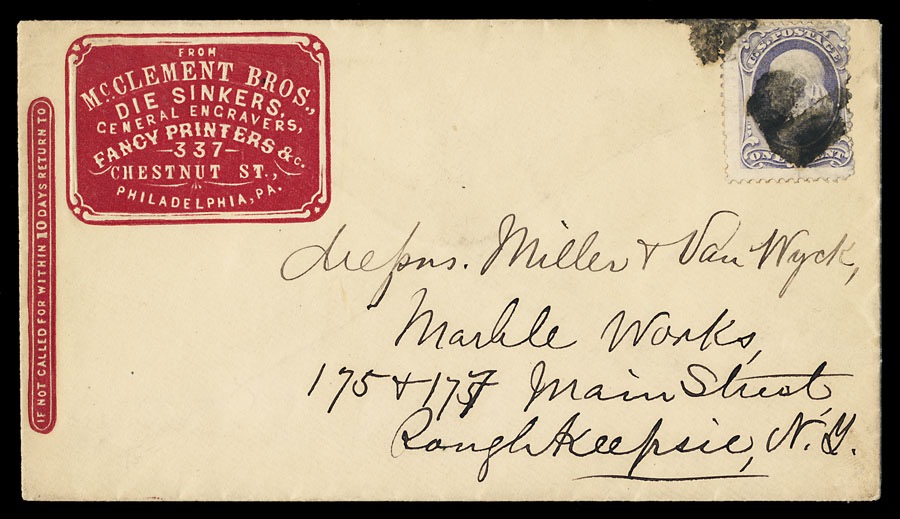 FROM
McCLEMENT BROS.,
DIE SINKERS,
GENERAL ENGRAVERS,
FANCY PRINTERS &c.
337
CHESTNUT ST.,
PHILADELPHIA, PA.
IF NOT CALLED FOR WITHIN 10 DAYS RETURN TO
U.S. POSTAGE
ONE CENT
Miller & Van Wyck,
Marble Works,
175 & 177 Main Street,
Poughkeepsie, N.Y.